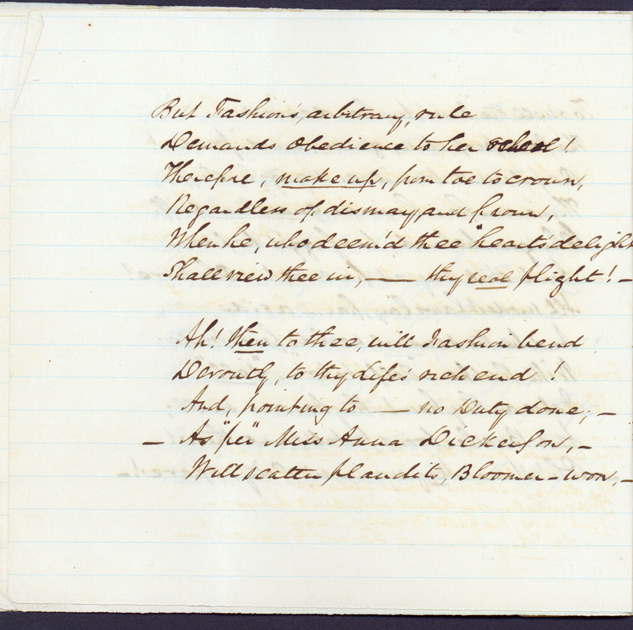 But Fashion's, arbitrary, rule
Demands obedience to her school!
Therefore, make up, from toe to crown,
Regardless of dismay, and frown,
When he, who deem'd thee "heart's deligh
Shall view thee in, — thy real plight! —
Ah! then to thee, will Fashion bend
Devoutly, to thy life's rich end!
And, pointing to — no Duty done, —
— As "per" Miss Anna Dickerson, —
Will scatter plaudits, Bloomer-won, —